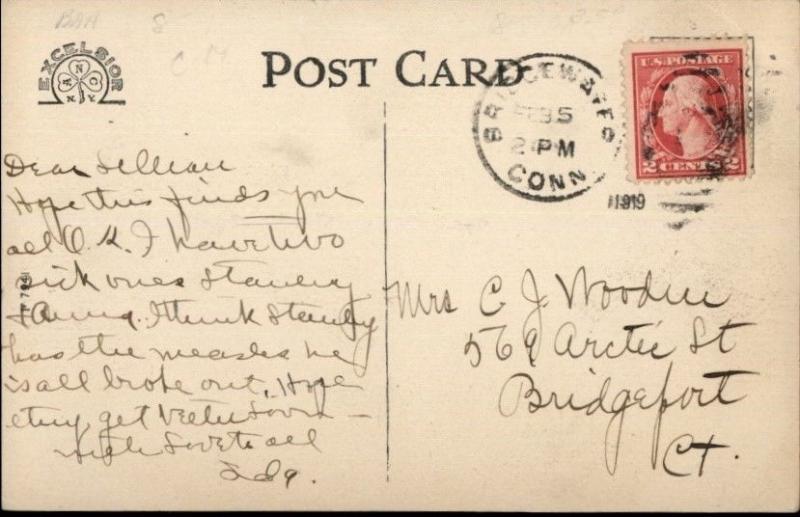 EXCELSIOR
A N C
N.Y.
POST CARD
BRIDGEWATER
FEB 5
2 PM
CONN
1919
U.S. POSTAGE
2 CENTS 2
Dear Lillian
Hope this finds you
all O.K. I have two
sick ones Stanley
& Anna. I think Stanley
has the measles he
is all broke out. Hope
they get better soon
with Love to all
Ida.
Mrs C J Woodin
569 Arctic St
Bridgeport
Ct.